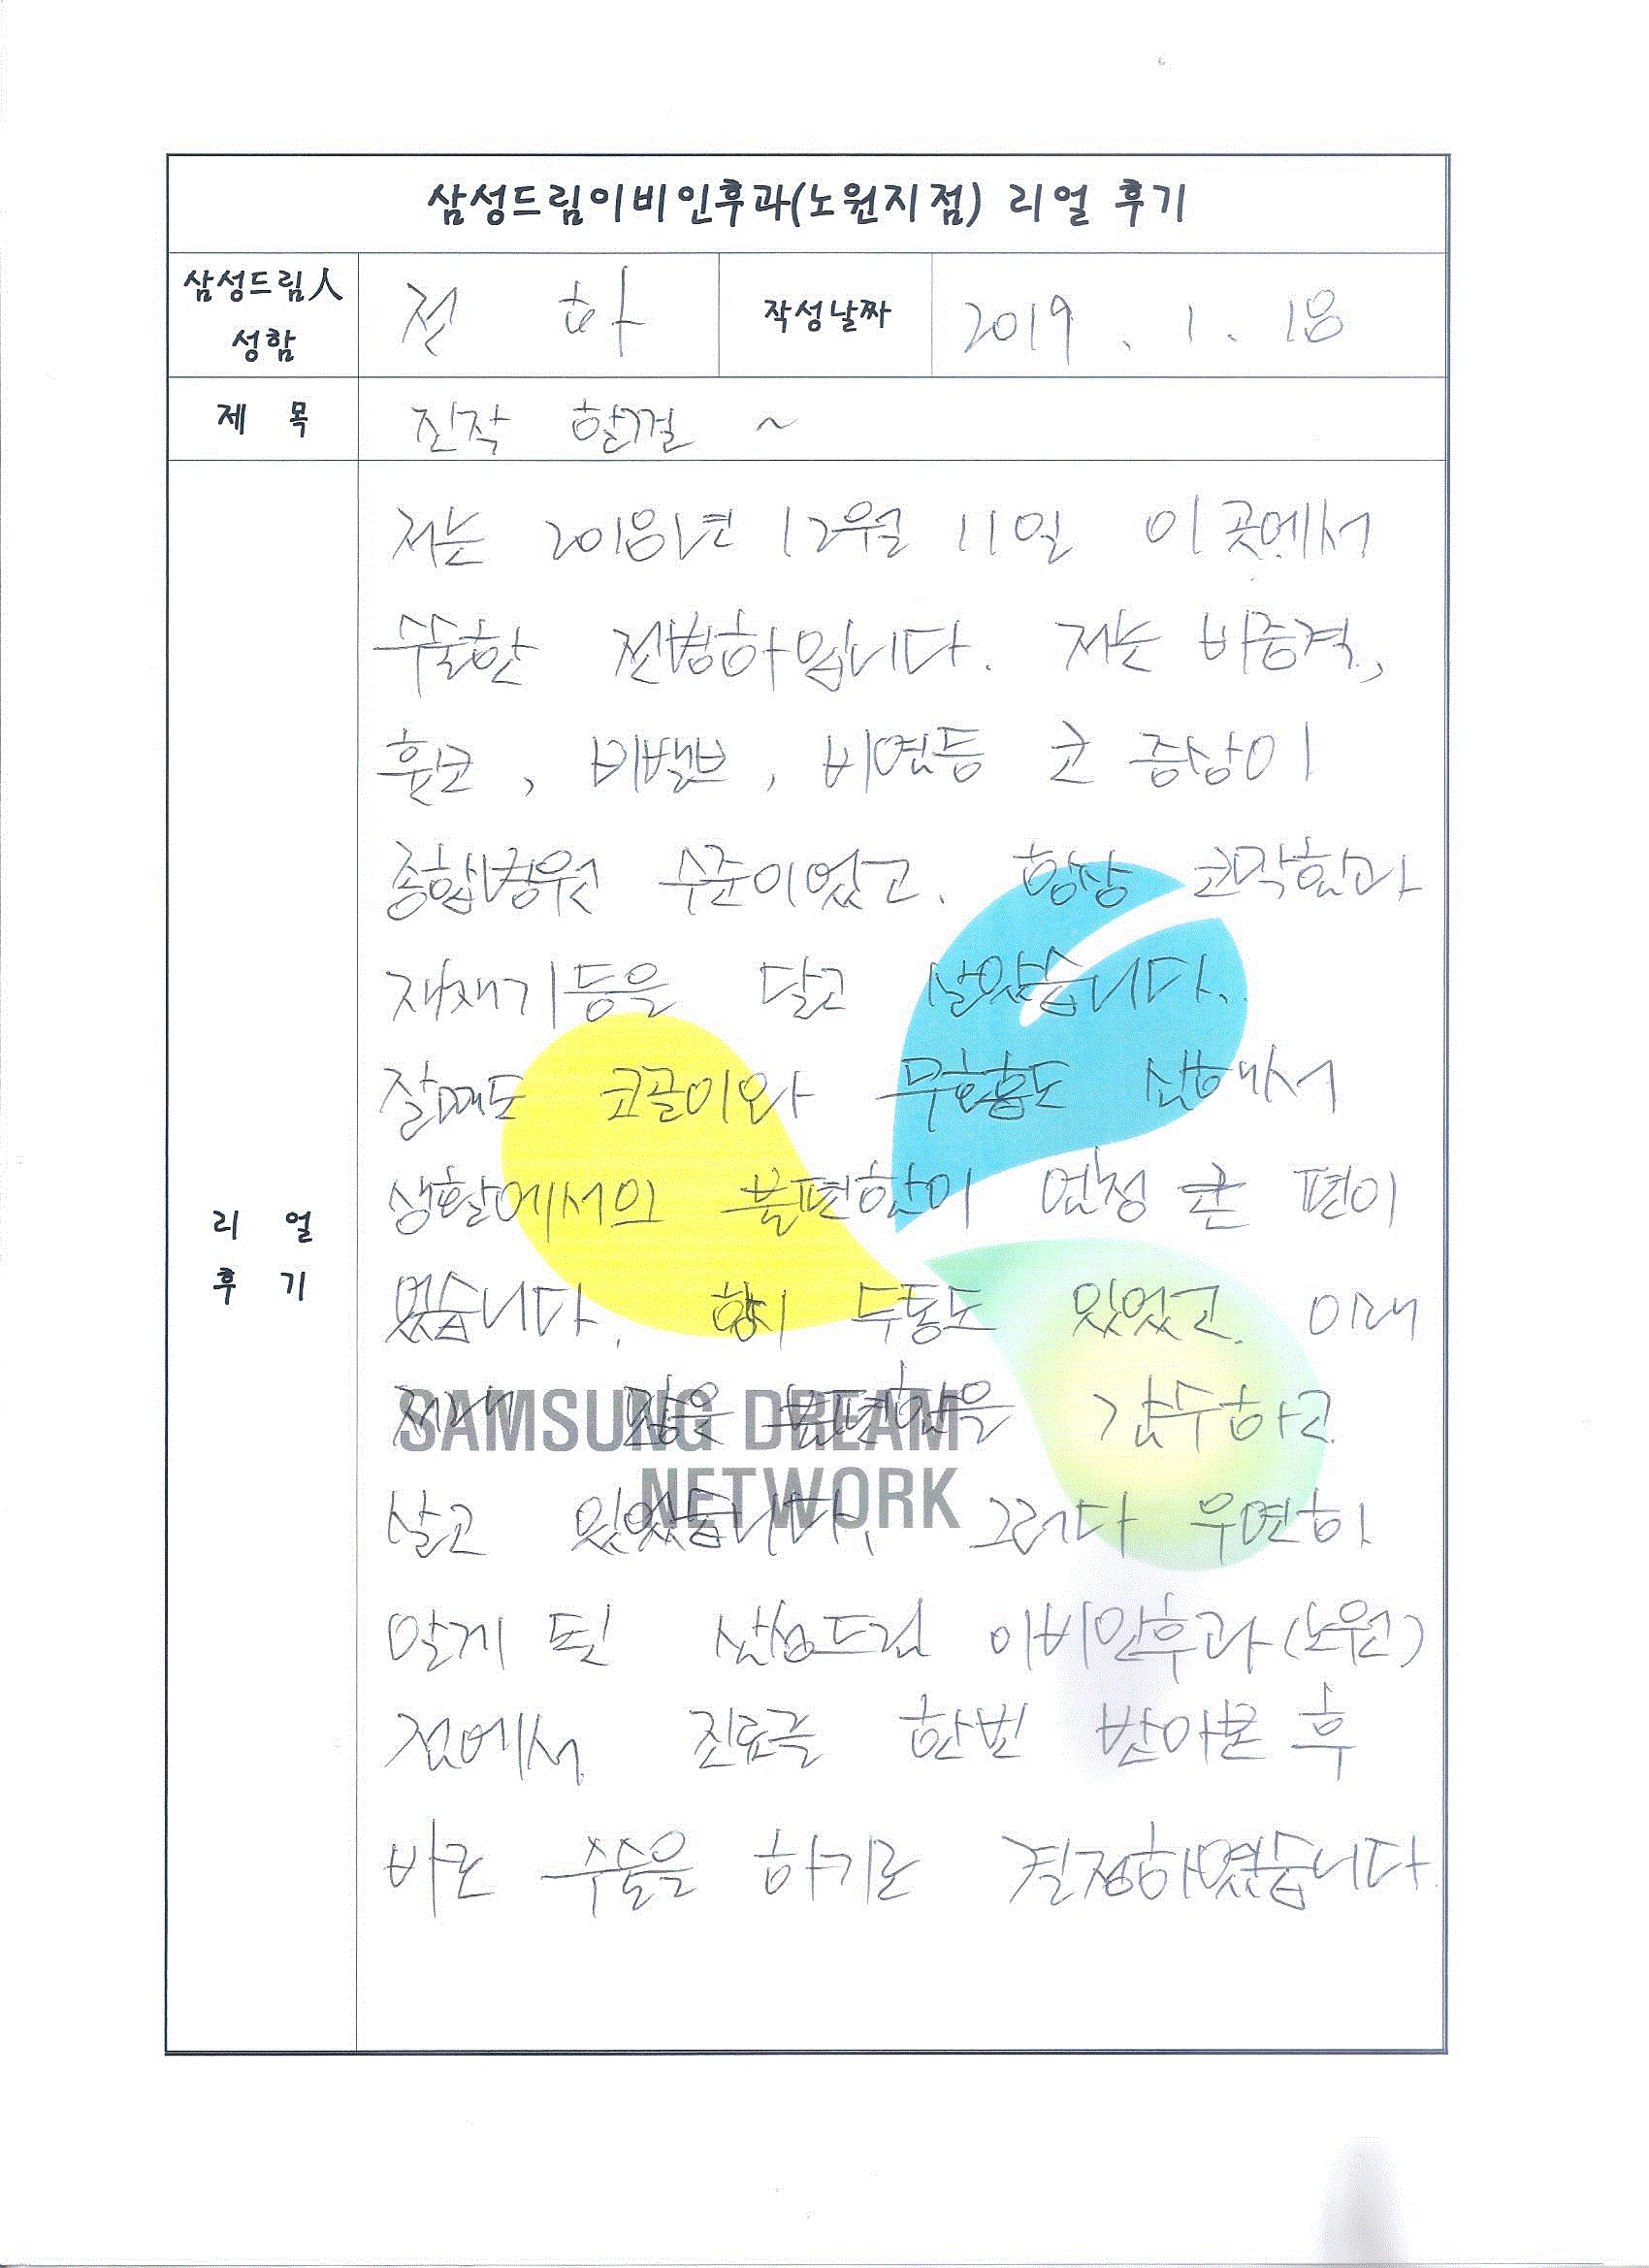 삼성드림이비인후과(노원지점) 리얼 후기
삼성드림人 성함
전 하
작성날짜
2019. 1. 18
제 목
진작 할껄 ~
리 얼
후 기
저는 2018년 12월 11일 이곳에서
수술한 전병하입니다. 저는 비중격,
휜코, 비밸브, 비염등 코 증상이
종합병원 수준이었고. 항상 코막힘과
재채기등을 달고 살았습니다.
잘때도 코골이와 무호흡도 심해서
생활에서의 불편함이 엄청 큰 편이
였습니다. 항시 두통도 있었고. 이래
저래 많은 불편함을 감수하고
살고 있었습니다. 그러다 우연히
알게 된 삼성드림 이비인후과(노원)
점에서 진료를 한번 받아본 후
바로 수술을 하기로 결정하였습니다.
SAMSUNG DREAM
NETWORK